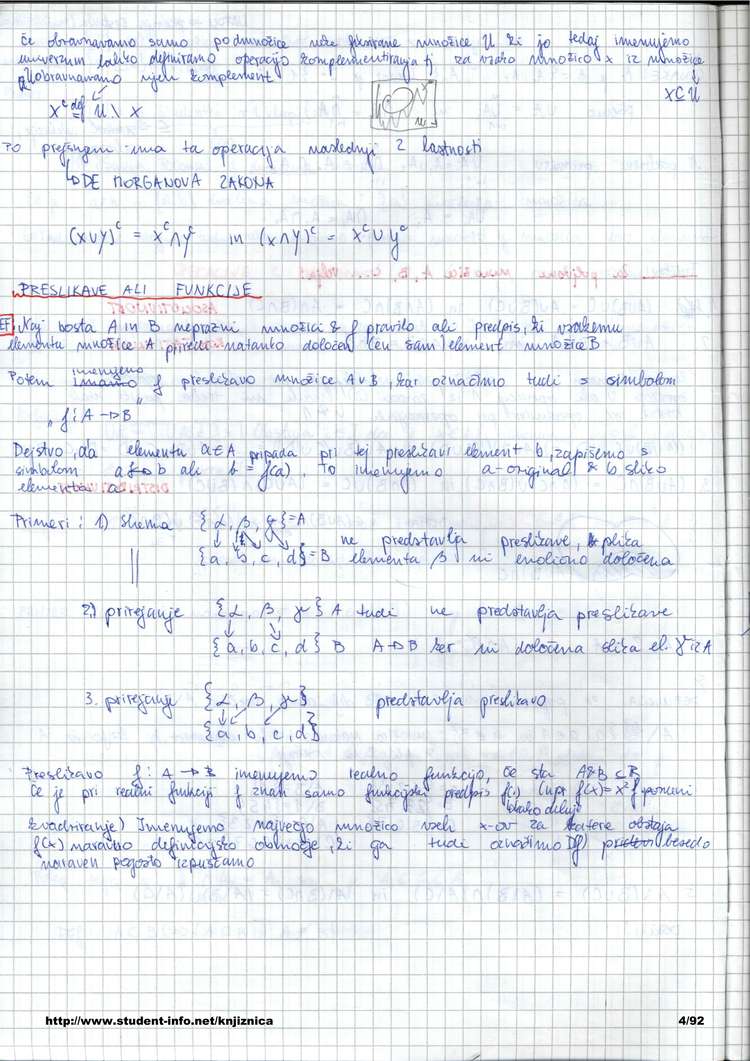 če obravnavamo samo podmnožice neke fiksirane množice U ki jo tedaj imenujemo
univerzum lahko definiramo operacijo komplementiranja tj za vsako množico x iz množice
U obravnavamo njen komplement
X ⊆ U
Xᶜ def= U \ X
PO prejšnjem ima ta operacija naslednji 2 lastnosti
↳ DE MORGANOVA ZAKONA
(X∪Y)ᶜ = Xᶜ∩Yᶜ in (X∩Y)ᶜ = Xᶜ∪Yᶜ
PRESLIKAVE ALI FUNKCIJE
EF Naj bosta A in B neprazni množici & f pravilo ali predpis, ki vsakemu
elementu množice A priredi natanko določen (en sam) element množice B
Potem imenujemo f preslikavo množice A v B, kar označimo tudi s simbolom
"f: A → B"
Dejstvo, da elementu a∈A pripada pri tej preslikavi element b, zapišemo s
simbolom a ↦ b ali b = f(a), to imenujemo a-original & b sliko
elementa a
Primeri: 1) Shema {α, β, γ}=A
ne predstavlja preslikave, slika
{a, b, c, d}=B elementa β ni enolično določena
2.) prirejanje {α, β, γ} A tudi ne predstavlja preslikave
{a, b, c, d} B A→B ker ni določena slika el. γ iz A
3. prirejanje {α, β, γ} predstavlja preslikavo
{a, b, c, d}
Preslikavo f: A → B imenujemo realno funkcijo, če sta A&B ⊆ R
Če je pri realni funkciji f znan samo funkcijski predpis f(.) (npr f(x)=x² f pomeni
kako deluje
kvadriranje) Imenujemo največjo množico vseh x-ov za katere obstaja
f(x) naravno definicijsko območje, ki ga tudi označimo Df) besedo
naraven pogosto izpuščamo
http://www.student-info.net/knjiznica
4/92